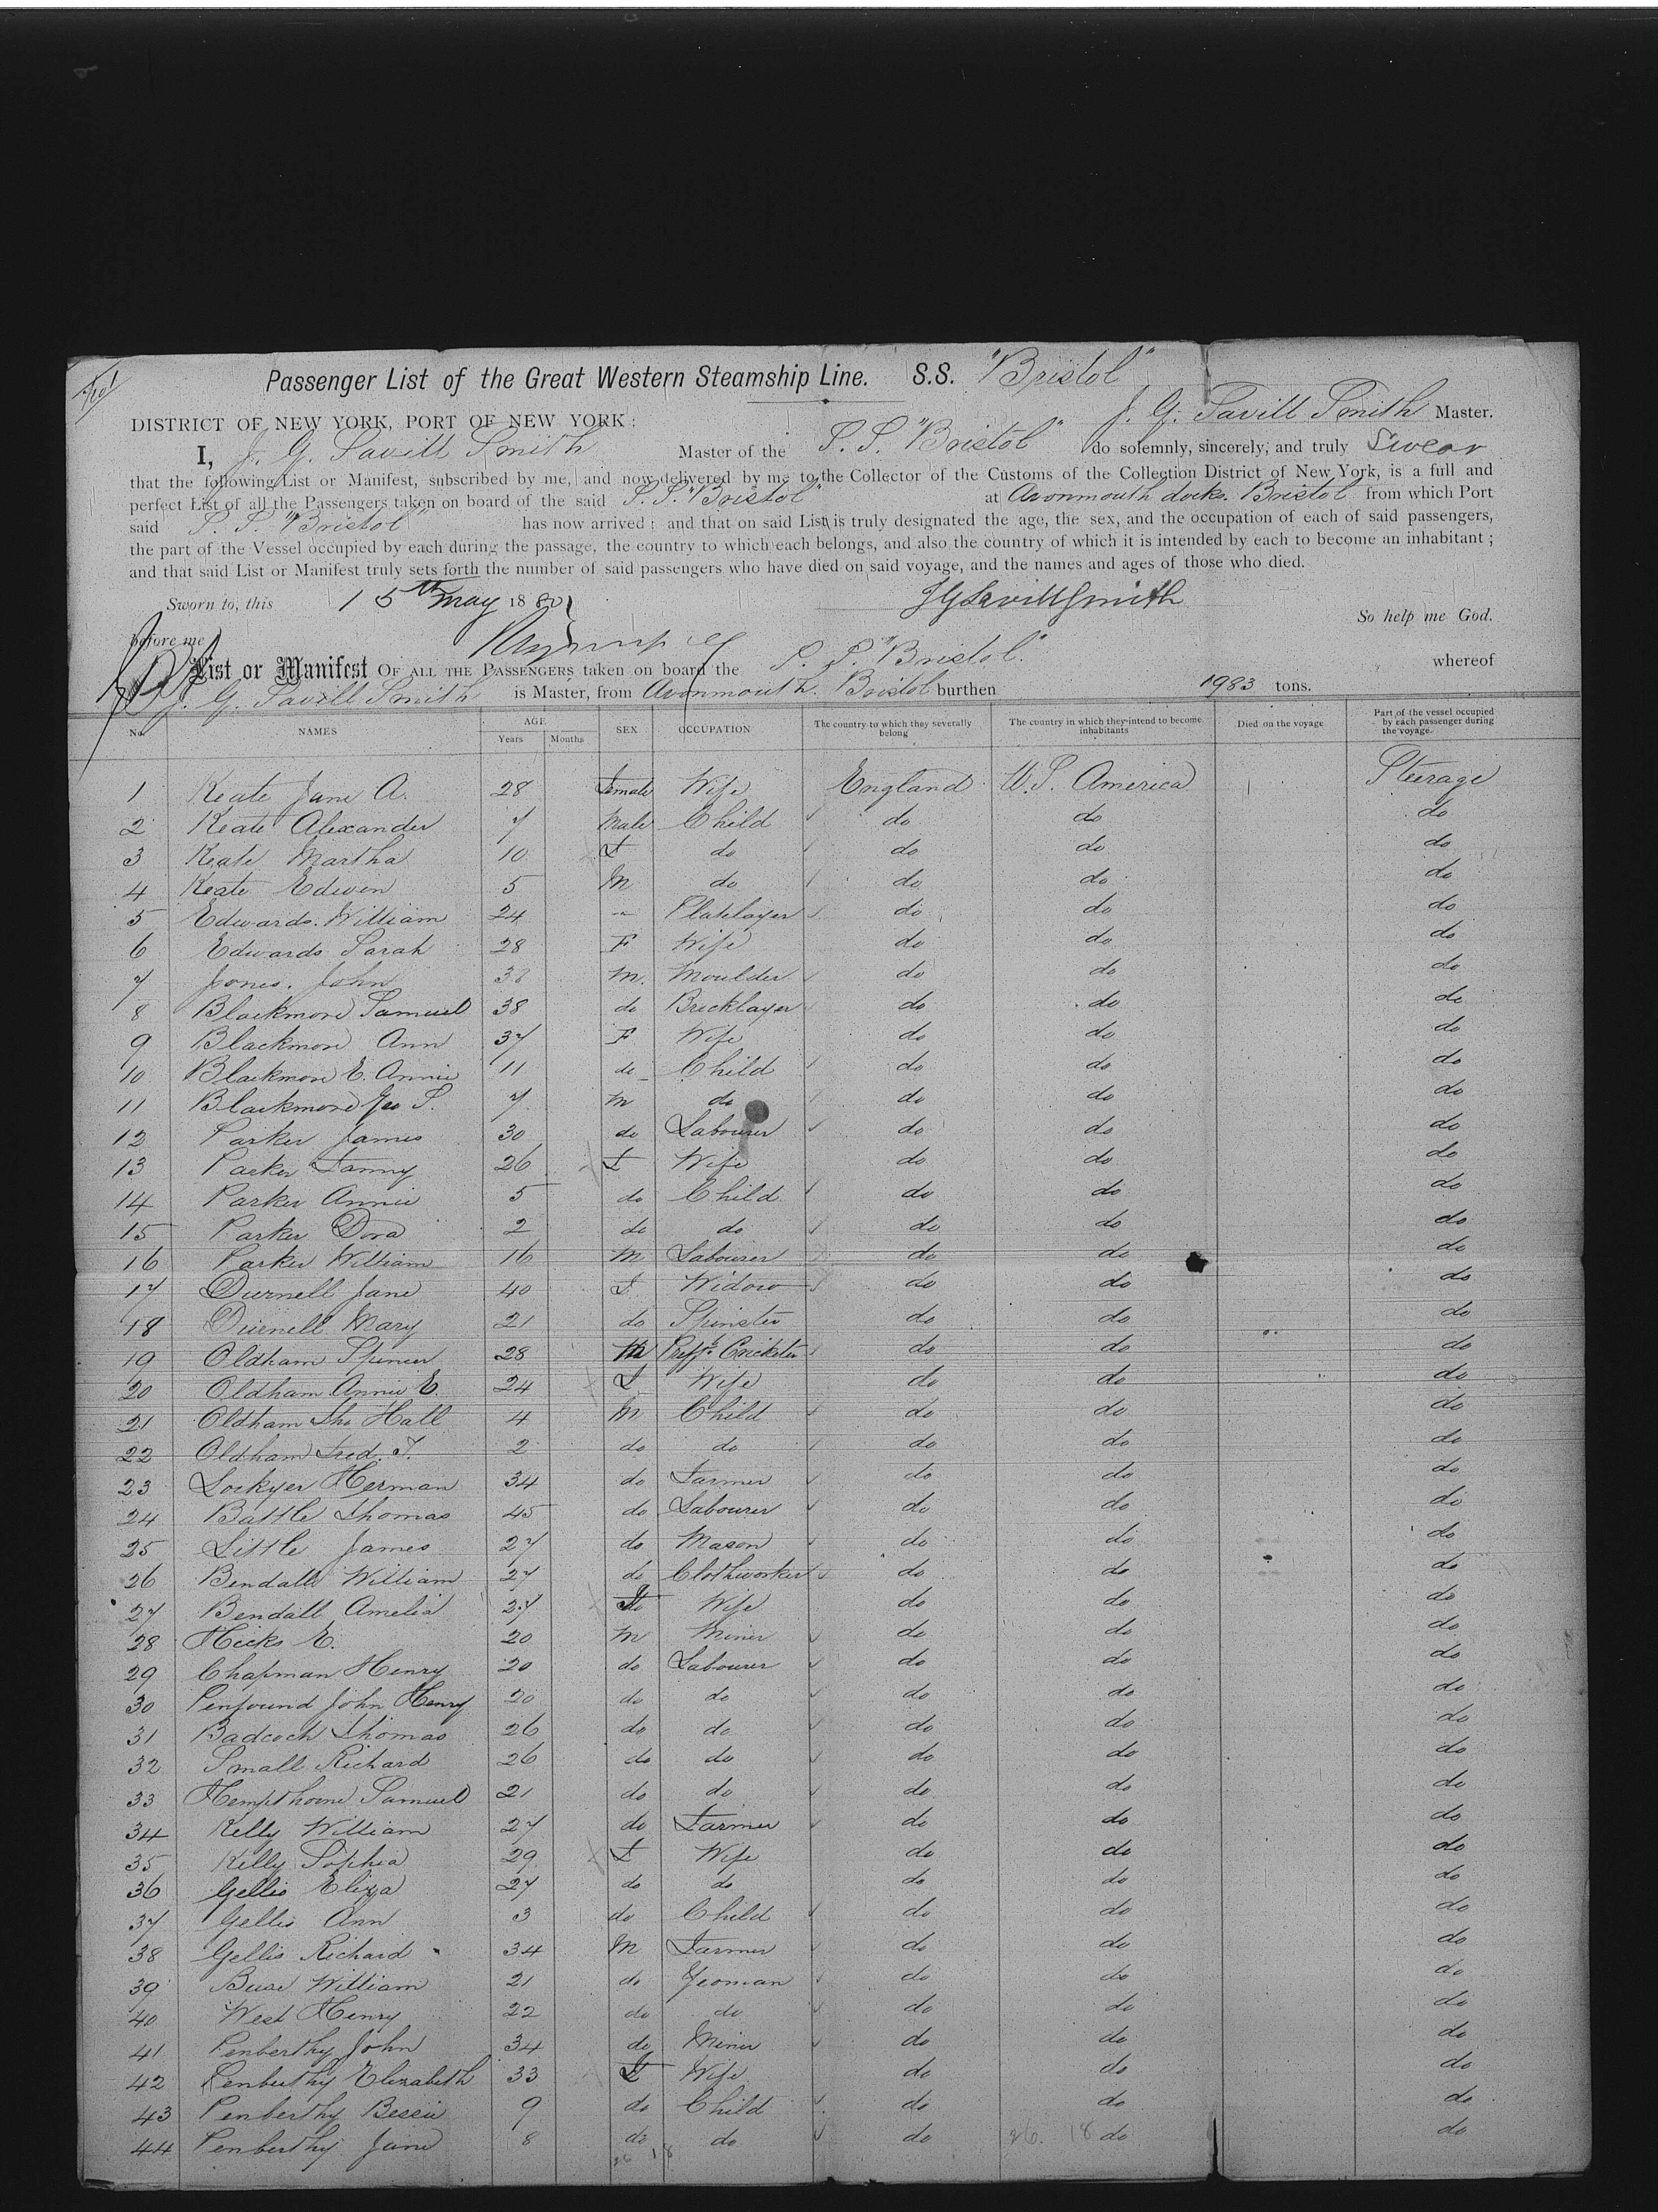 Passenger List of the Great Western Steamship Line. S.S. "Bristol"
J. G. Savill Smith Master.
DISTRICT OF NEW YORK, PORT OF NEW YORK:
I, J. G. Savill Smith Master of the S.S. "Bristol" do solemnly, sincerely, and truly Swear
that the following List or Manifest, subscribed by me, and now delivered by me to the Collector of the Customs of the Collection District of New York, is a full and
perfect List of all the Passengers taken on board of the said S.S. "Bristol" at Avonmouth docks. Bristol from which Port
said S.S. "Bristol" has now arrived; and that on said List is truly designated the age, the sex, and the occupation of each of said passengers,
the part of the Vessel occupied by each during the passage, the country to which each belongs, and also the country of which it is intended by each to become an inhabitant;
and that said List or Manifest truly sets forth the number of said passengers who have died on said voyage, and the names and ages of those who died.
Sworn to, this 15th May 1880 JGSavillSmith So help me God.
before me
List or Manifest OF ALL THE PASSENGERS taken on board the S.S. "Bristol" whereof
J. G. Savill Smith is Master, from Avonmouth. Bristol burthen 1983 tons.
No. NAMES AGE Years Months SEX OCCUPATION The country to which they severally belong The country in which they intend to become inhabitants Died on the voyage Part of the vessel occupied by each passenger during the voyage.
1 Keate Jane A. 28 Female Wife England U.S. America Steerage
2 Keate Alexander 7 Male Child do do do
3 Keate Martha 10 F do do do do
4 Keate Edwin 5 M do do do do
5 Edwards. William 24 Platelayer do do do
6 Edwards Sarah 28 F Wife do do do
7 Jones. John M. Moulder do do do
8 Blackmore Samuel 38 do Bricklayer do do do
9 Blackmore Ann 37 F Wife do do do
10 Blackmore E. Annie 11 do Child do do do
11 Blackmore Geo S. 7 M do do do do
12 Parker James 30 do Labourer do do do
13 Parker Fanny 26 F Wife do do do
14 Parker Annie 5 do Child do do do
15 Parker Dora 2 do do do do do
16 Parker William 16 M Labourer do do do
17 Durnell Jane 40 F Widow do do do
18 Durnell Mary 21 do Spinster do do do
19 Oldham Spencer 28 M Proffs Cricketer do do do
20 Oldham Annie E. 24 F Wife do do do
21 Oldham Tho Hall 4 M Child do do do
22 Oldham Fred. T. 2 do do do do do
23 Lockyer Herman 34 do Farmer do do do
24 Battle Thomas 45 do Labourer do do do
25 Little James 27 do Mason do do do
26 Bendall William 27 do Clothworker do do do
27 Bendall Amelia 27 F Wife do do do
28 Hicks E. 20 M Miner do do do
29 Chapman Henry 20 do Labourer do do do
30 Penfound John Henry 20 do do do do do
31 Badcock Thomas 26 do do do do do
32 Small Richard 26 do do do do do
33 Hempthorne Samuel 21 do do do do do
34 Kelly William 27 do Farmer do do do
35 Kelly Sophia 29 F Wife do do do
36 Gellis Eliza 27 do do do do do
37 Gellis Ann 3 do Child do do do
38 Gellis Richard 34 M Farmer do do do
39 Buse William 21 do Yeoman do do do
40 West Henry 22 do do do do do
41 Penberthy John 34 do Miner do do do
42 Penberthy Elizabeth 33 F Wife do do do
43 Penberthy Bessie 9 do Child do do do
44 Penberthy Jane 8 do do do 26. 18 do do
26 18